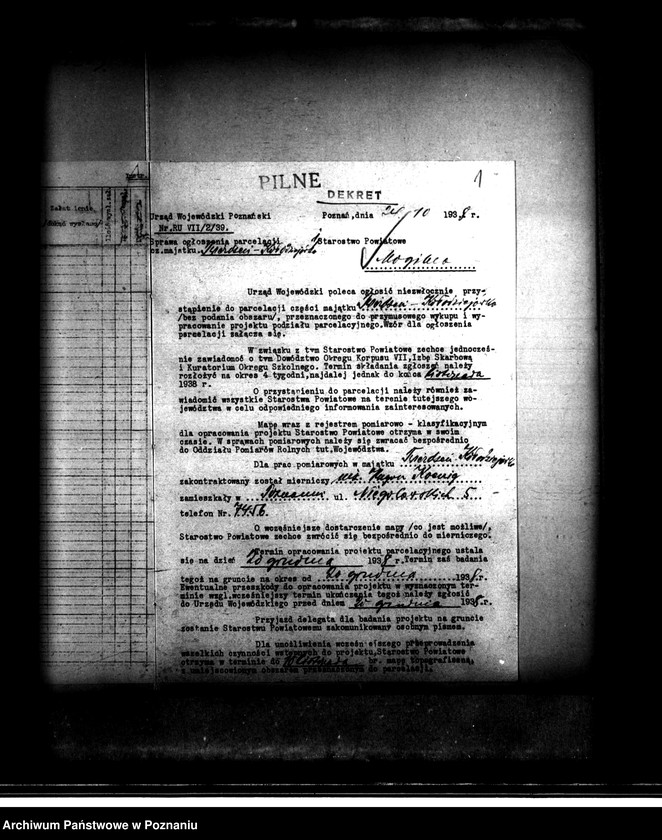 1
PILNE
DEKRET
Urząd Wojewódzki Poznański Poznań, dnia 10 1938 r.
Nr.RU VII/2/39.
Sprawa ogłoszenia parcelacji Starostwo Powiatowe
cz.majątku
Mogilno
Urząd Wojewódzki poleca ogłosić niezwłocznie przy-
stąpienie do parcelacji części majątku
/bez podania obszaru/, przeznaczonego do przymusowego wykupu i wy-
pracowanie projektu podziału parcelacyjnego.Wzór dla ogłoszenia
parcelacji załącza się.
W związku z tym Starostwo Powiatowe zechce jednocześ-
nie zawiadomić o tym Dowództwo Okręgu Korpusu VII,Izbę Skarbową
i Kuratorium Okręgu Szkolnego. Termin składania zgłoszeń należy
rozłożyć na okres 4 tygodni,najdalej jednak do końca listopada
1938 r.
O przystąpieniu do parcelacji należy również za-
wiadomić wszystkie Starostwa Powiatowe na terenie tutejszego wo-
jewództwa w celu odpowiedniego informowania zainteresowanych.
Mapę wraz z rejestrem pomiarowo - klasyfikacyjnym
dla opracowania projektu Starostwo Powiatowe otrzyma w swoim
czasie. W sprawach pomiarowych należy się zwracać bezpośrednio
do Oddziału Pomiarów Rolnych tut.Województwa.
Dla prac pomiarowych w majątku
zakontraktowany został mierniczy inż. Koenig
zamieszkały w Poznaniu ul. 5
telefon Nr. 7456.
O wcześniejsze dostarczenie mapy /co jest możliwe/,
Starostwo Powiatowe zechce zwrócić się bezpośrednio do mierniczego.
Termin opracowania projektu parcelacyjnego ustala
się na dzień 20 grudnia 1938 r.Termin zaś badania
tegoż na gruncie na okres od 20 grudnia 1938 r.
Ewentualne przeszkody do opracowania projektu w wyznaczonym ter-
minie wzgl.wcześniejszy termin ukończenia tegoż należy zgłosić
do Urzędu Wojewódzkiego przed dniem 20 grudnia 1938 r.
Przyjazd delegata dla badania projektu na gruncie
zostanie Starostwu Powiatowemu zakomunikowany osobnym pismem.
Dla umożliwienia wcześniejszego przeprowadzenia
wszelkich czynności wstępnych do projektu,Starostwo Powiatowe
otrzyma w terminie do listopada br. mapę topograficzną,
z umiejscowionym obszarem przeznaczonym do parcelacji.
Archiwum Państwowe w Poznaniu